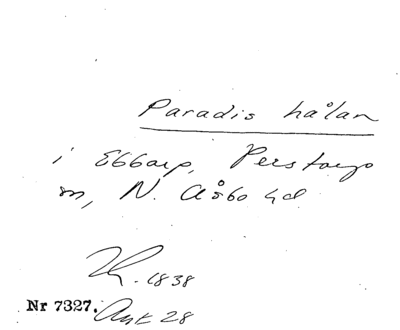 Paradis hålan
i Ebbarp, Perstorps
sn, N. Åsbo hd
1838
Nr 7327.
Ant 28